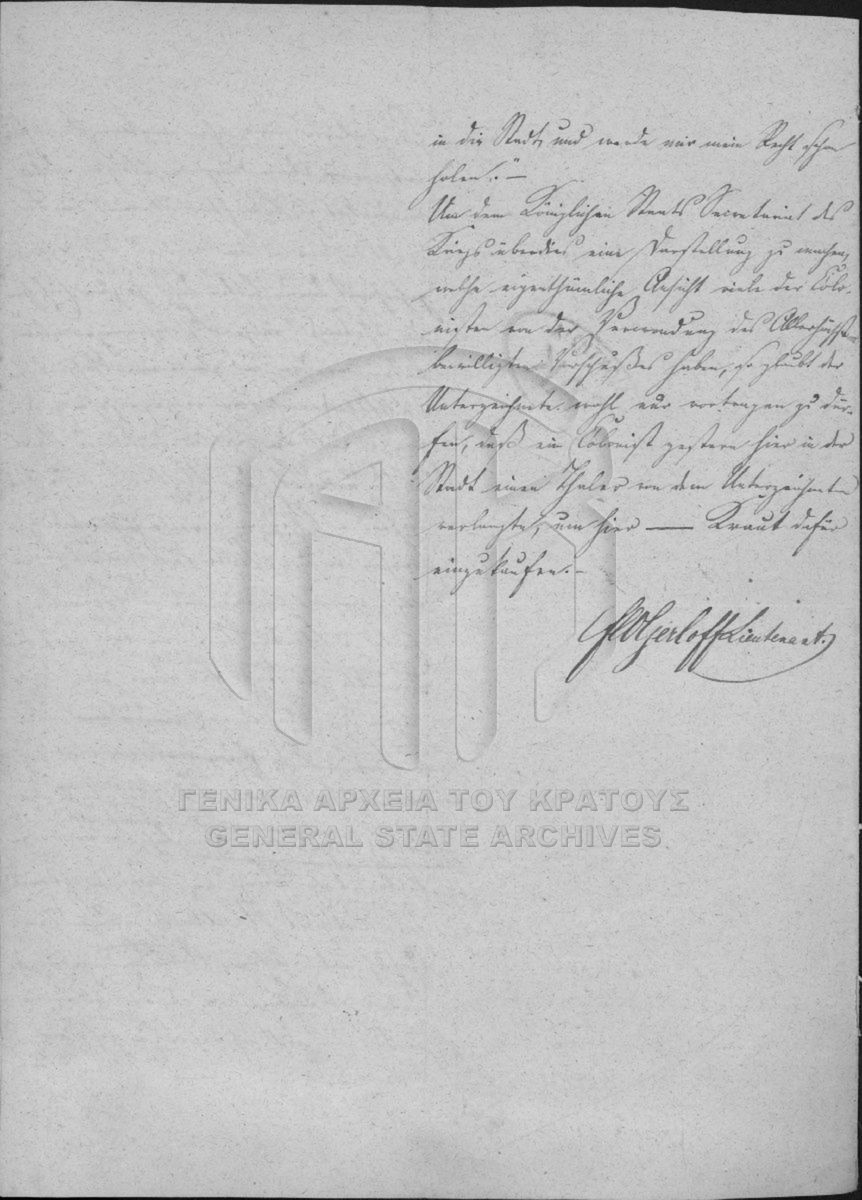 in die Stadt und werde mir mein Recht schon
holen." —
Um dem Königlichen Staats Secretariat des
Kriegs überdies eine Darstellung zu machen,
welche eigenthümliche Ansicht viele der Colo-
nisten von der Verwendung des Allerhöchst-
bewilligten Vorschußes haben, so glaubt der
Unterzeichnete wohl nur vortragen zu dür-
fen, daß ein Colonist gestern hier in der
Stadt einen Thaler von dem Unterzeichneten
verlangte, um hier — Kraut dafür
einzukaufen. —
Lieutenant.
ΓΕΝΙΚΑ ΑΡΧΕΙΑ ΤΟΥ ΚΡΑΤΟΥΣ
GENERAL STATE ARCHIVES